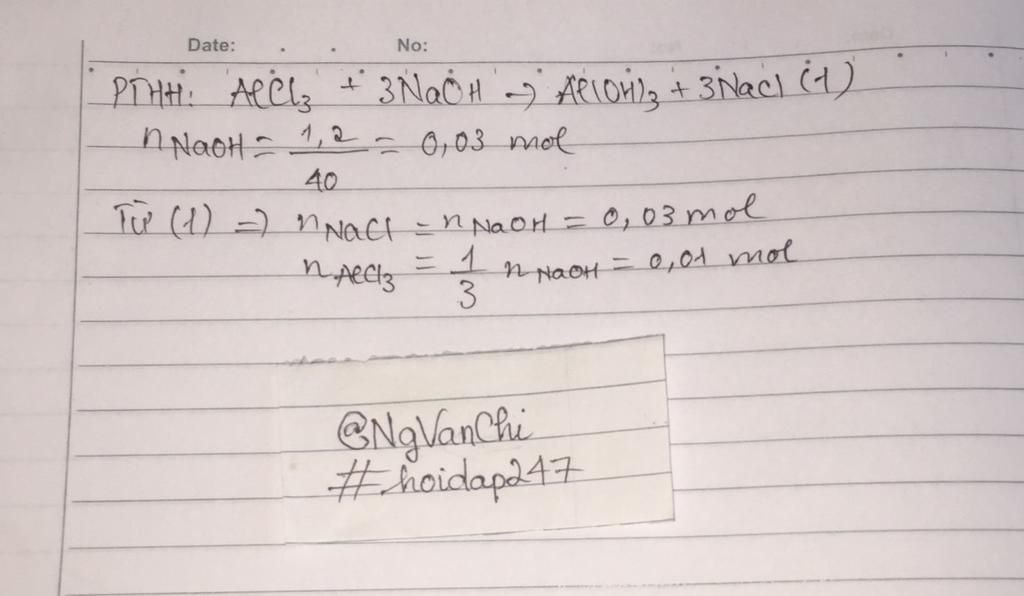 Date: . . No:
PTHH: AlCl3 + 3NaOH → Al(OH)3 + 3NaCl (1)
nNaOH = 1,2/40 = 0,03 mol
Từ (1) => nNaCl = nNaOH = 0,03 mol
nAlCl3 = 1/3 nNaOH = 0,01 mol
@NgVanChi
#hoidap247